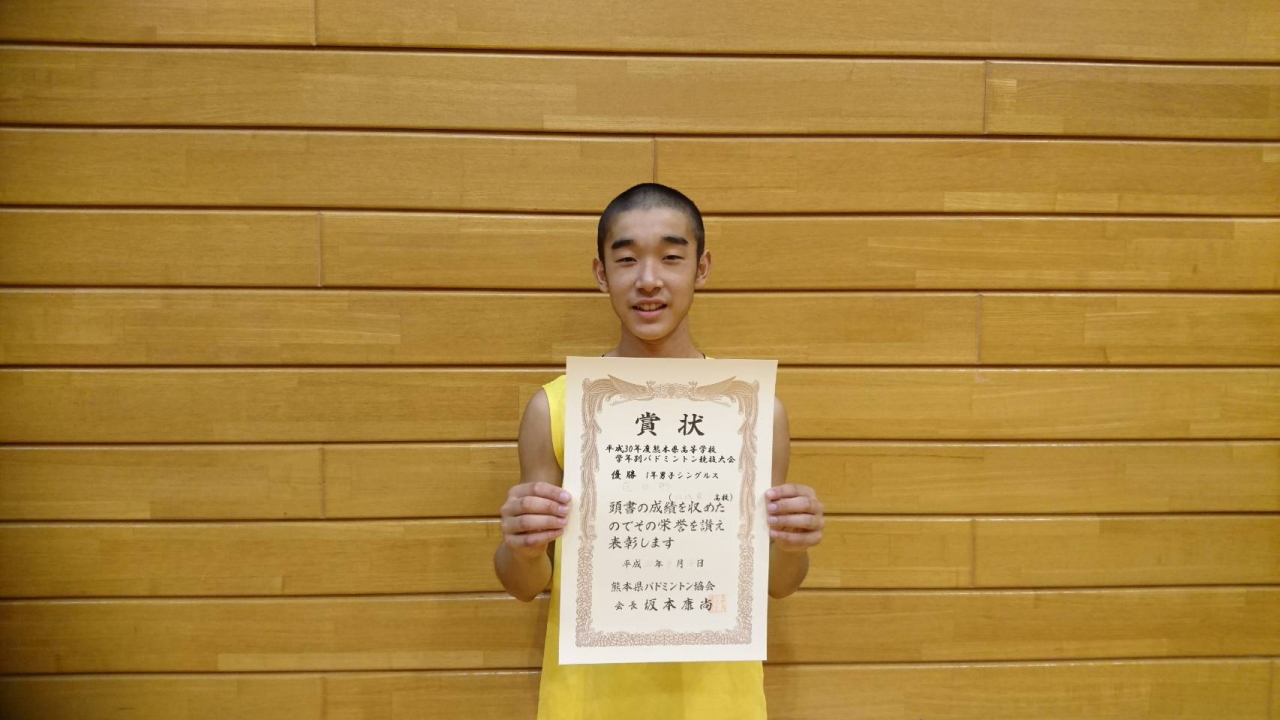 賞状
平成30年度熊本県高等学校
学年別バドミントン競技大会
優勝 1年男子シングルス
高校)
頭書の成績を収めた
のでその栄誉を讃え
表彰します
平成 年 月 日
熊本県バドミントン協会
会長 坂本康尚